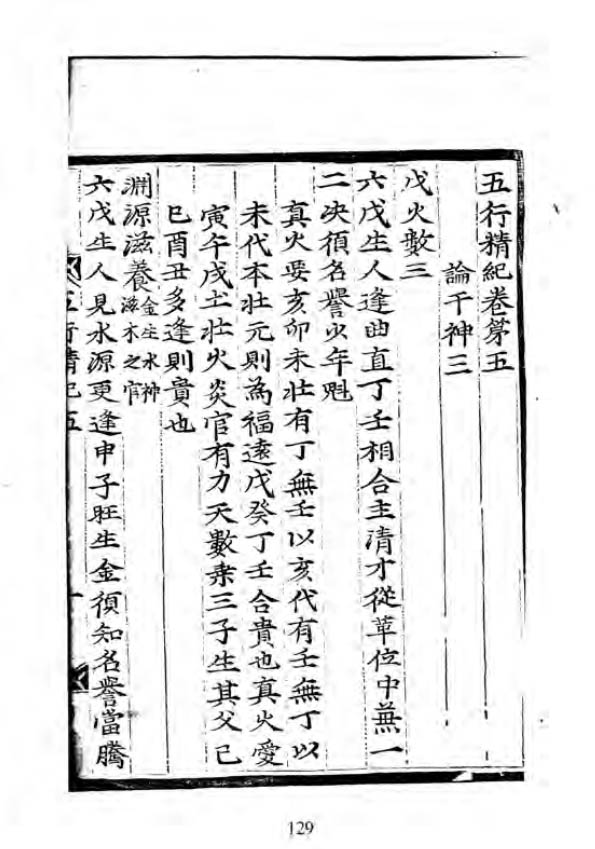 五行精紀卷第五
論干神三
戊火數三
六戊生人逢曲直丁壬相合主清才從革位中無一
二決須名譽少年魁
真火要亥卯未壯有丁無壬以亥代有壬無丁以
未代本壯元則為福遠戊癸丁壬合貴也真火愛
寅午戌土壯火炎官有力天數乘三子生其父己
巳酉丑多逢則貴也
淵源滋養金生水神滋木之官
六戊生人見水源更逢申子旺生金須知名譽當騰
五行精紀五
一
129